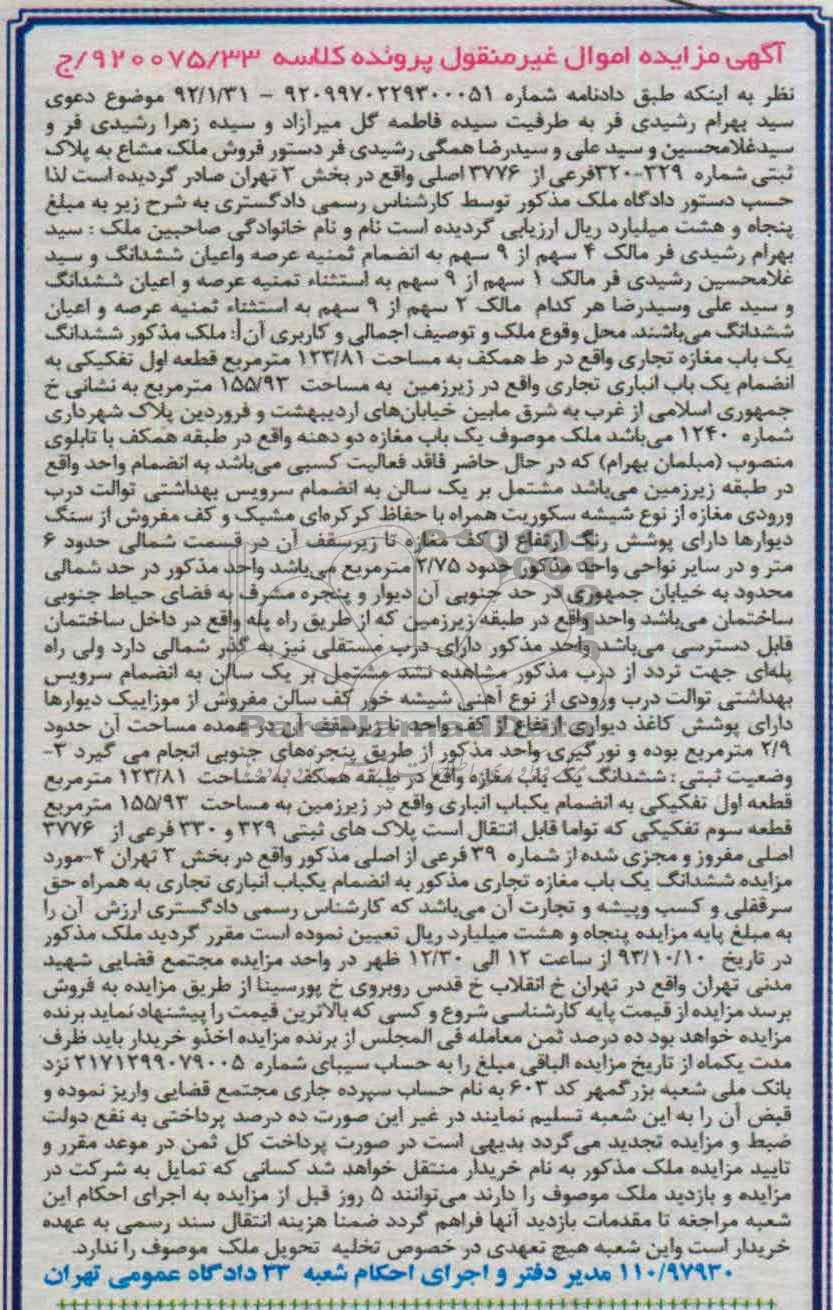 آگهی مزایده اموال غیرمنقول پرونده کلاسه ۹۲۰۰۷۵/۳۳/ج
نظر به اینکه طبق دادنامه شماره ۹۲۰۹۹۷۰۲۲۹۳۰۰۰۵۱ - ۹۲/۱/۳۱ موضوع دعوی
سید بهرام رشیدی فر به طرفیت سیده فاطمه گل میرآزاد و سیده زهرا رشیدی فر و
سیدغلامحسین و سید علی و سیدرضا همگی رشیدی فر دستور فروش ملک مشاع به پلاک
ثبتی شماره ۳۲۹-۳۲۰فرعی از ۳۷۷۶ اصلی واقع در بخش ۳ تهران صادر گردیده است لذا
حسب دستور دادگاه ملک مذکور توسط کارشناس رسمی دادگستری به شرح زیر به مبلغ
پنجاه و هشت میلیارد ریال ارزیابی گردیده است نام و نام خانوادگی صاحبین ملک : سید
بهرام رشیدی فر مالک ۴ سهم از ۹ سهم به انضمام ثمنیه عرصه واعیان ششدانگ و سید
غلامحسین رشیدی فر مالک ۱ سهم از ۹ سهم به استثناء تمنیه عرصه و اعیان ششدانگ
و سید علی وسیدرضا هر کدام مالک ۲ سهم از ۹ سهم به استثناء ثمنیه عرصه و اعیان
ششدانگ می‌باشند. محل وقوع ملک و توصیف اجمالی و کاربری آن: ملک مذکور ششدانگ
یک باب مغازه تجاری واقع در ط همکف به مساحت ۱۲۳/۸۱ مترمربع قطعه اول تفکیکی به
انضمام یک باب انباری تجاری واقع در زیرزمین به مساحت ۱۵۵/۹۳ مترمربع به نشانی خ
جمهوری اسلامی از غرب به شرق مابین خیابان‌های اردیبهشت و فروردین پلاک شهرداری
شماره ۱۲۴۰ می‌باشد ملک موصوف یک باب مغازه دو دهنه واقع در طبقه همکف با تابلوی
منصوب (مبلمان بهرام) که در حال حاضر فاقد فعالیت کسبی می‌باشد به انضمام واحد واقع
در طبقه زیرزمین می‌باشد مشتمل بر یک سالن به انضمام سرویس بهداشتی توالت درب
ورودی مغازه از نوع شیشه سکوریت همراه با حفاظ کرکره‌ای مشبک و کف مفروش از سنگ
دیوارها دارای پوشش رنگ ارتفاع از کف مغازه تا زیرسقف آن در قسمت شمالی حدود ۶
متر و در سایر نواحی واحد مذکور حدود ۲/۷۵ مترمربع می‌باشد واحد مذکور در حد شمالی
محدود به خیابان جمهوری در حد جنوبی آن دیوار و پنجره مشرف به فضای حیاط جنوبی
ساختمان می‌باشد واحد واقع در طبقه زیرزمین که از طریق راه پله واقع در داخل ساختمان
قابل دسترسی می‌باشد واحد مذکور دارای درب مستقلی نیز به گذر شمالی دارد ولی راه
پله‌ای جهت تردد از درب مذکور مشاهده نشد مشتمل بر یک سالن به انضمام سرویس
بهداشتی توالت درب ورودی از نوع آهنی شیشه خور کف سالن مفروش از موزاییک دیوارها
دارای پوشش کاغذ دیواری ارتفاع از کف واحد تا زیرسقف آن در عمده مساحت آن حدود
۲/۹ مترمربع بوده و نورگیری واحد مذکور از طریق پنجره‌های جنوبی انجام می گیرد ۳-
وضعیت ثبتی : ششدانگ یک باب مغازه واقع در طبقه همکف به مساحت ۱۲۳/۸۱ مترمربع
قطعه اول تفکیکی به انضمام یکباب انباری واقع در زیرزمین به مساحت ۱۵۵/۹۳ مترمربع
قطعه سوم تفکیکی که تواما قابل انتقال است پلاک های ثبتی ۳۲۹ و ۳۳۰ فرعی از ۳۷۷۶
اصلی مفروز و مجزی شده از شماره ۳۹ فرعی از اصلی مذکور واقع در بخش ۳ تهران ۴-مورد
مزایده ششدانگ یک باب مغازه تجاری مذکور به انضمام یکباب انباری تجاری به همراه حق
سرقفلی و کسب وپیشه و تجارت آن می‌باشد که کارشناس رسمی دادگستری ارزش آن را
به مبلغ پایه مزایده پنجاه و هشت میلیارد ریال تعیین نموده است مقرر گردید ملک مذکور
در تاریخ ۹۳/۱۰/۱۰ از ساعت ۱۲ الی ۱۲/۳۰ ظهر در واحد مزایده مجتمع قضایی شهید
مدنی تهران واقع در تهران خ انقلاب خ قدس روبروی خ پورسینا از طریق مزایده به فروش
برسد مزایده از قیمت پایه کارشناسی شروع و کسی که بالاترین قیمت را پیشنهاد نماید برنده
مزایده خواهد بود ده درصد ثمن معامله فی المجلس از برنده مزایده اخذو خریدار باید ظرف
مدت یکماه از تاریخ مزایده الباقی مبلغ را به حساب سیبای شماره ۲۱۷۱۲۹۹۰۷۹۰۰۵ نزد
بانک ملی شعبه بزرگمهر کد ۶۰۳ به نام حساب سپرده جاری مجتمع قضایی واریز نموده و
قبض آن را به این شعبه تسلیم نمایند در غیر این صورت ده درصد پرداختی به نفع دولت
ضبط و مزایده تجدید می‌گردد بدیهی است در صورت پرداخت کل ثمن در موعد مقرر و
تایید مزایده ملک مذکور به نام خریدار منتقل خواهد شد کسانی که تمایل به شرکت در
مزایده و بازدید ملک موصوف را دارند می‌توانند ۵ روز قبل از مزایده به اجرای احکام این
شعبه مراجعه تا مقدمات بازدید آنها فراهم گردد ضمنا هزینه انتقال سند رسمی به عهده
خریدار است واین شعبه هیچ تعهدی در خصوص تخلیه تحویل ملک موصوف را ندارد.
۱۱۰/۹۷۹۳۰ مدیر دفتر و اجرای احکام شعبه ۳۳ دادگاه عمومی تهران